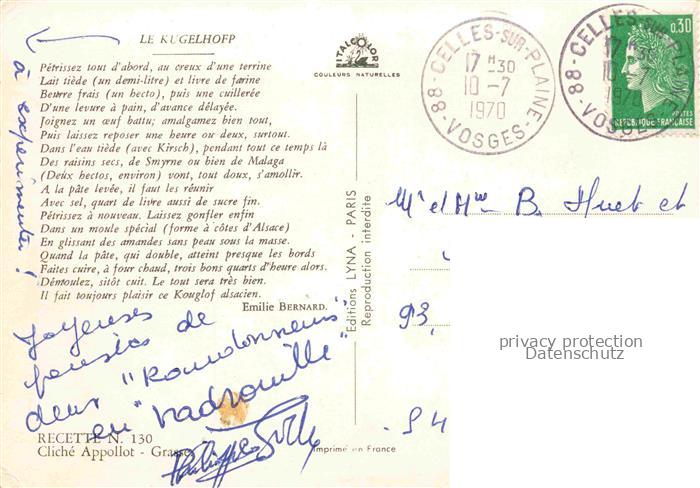 LE KUGELHOFP
Pétrissez tout d'abord, au creux d'une terrine
Lait tiède (un demi-litre) et livre de farine
Beurre frais (un hecto), puis une cuillerée
D'une levure à pain, d'avance délayée.
Joignez un œuf battu; amalgamez bien tout,
Puis laissez reposer une heure ou deux, surtout.
Dans l'eau tiède (avec Kirsch), pendant tout ce temps là
Des raisins secs, de Smyrne ou bien de Malaga
(Deux hectos, environ) vont, tout doux, s'amollir.
A la pâte levée, il faut les réunir
Avec sel, quart de livre aussi de sucre fin.
Pétrissez à nouveau. Laissez gonfler enfin
Dans un moule spécial (forme à côtes d'Alsace)
En glissant des amandes sans peau sous la masse.
Quand la pâte, qui double, atteint presque les bords
Faites cuire, à four chaud, trois bons quarts d'heure alors.
Démoulez, sitôt cuit. Le tout sera très bien.
Il fait toujours plaisir ce Kouglof alsacien.
Emilie BERNARD.
à expérimenter !
Joyeuses
pensées de
deux "Randonneurs
en "vadrouille"
RECETTE N. 130
Cliché Appollot - Grasse
Imprimé en France
ITALCOLOR
COULEURS NATURELLES
Editions LYNA - PARIS
Reproduction interdite
CELLES-SUR-PLAINE
17 H 30
10-7
1970
88 - VOSGES
CELLES-SUR-PLAINE
17 H 30
10-7
1970
88 - VOSGES
0,30
POSTES
REPUBLIQUE FRANÇAISE
Mr et Mme B. Huet et
93,
94
privacy protection
Datenschutz